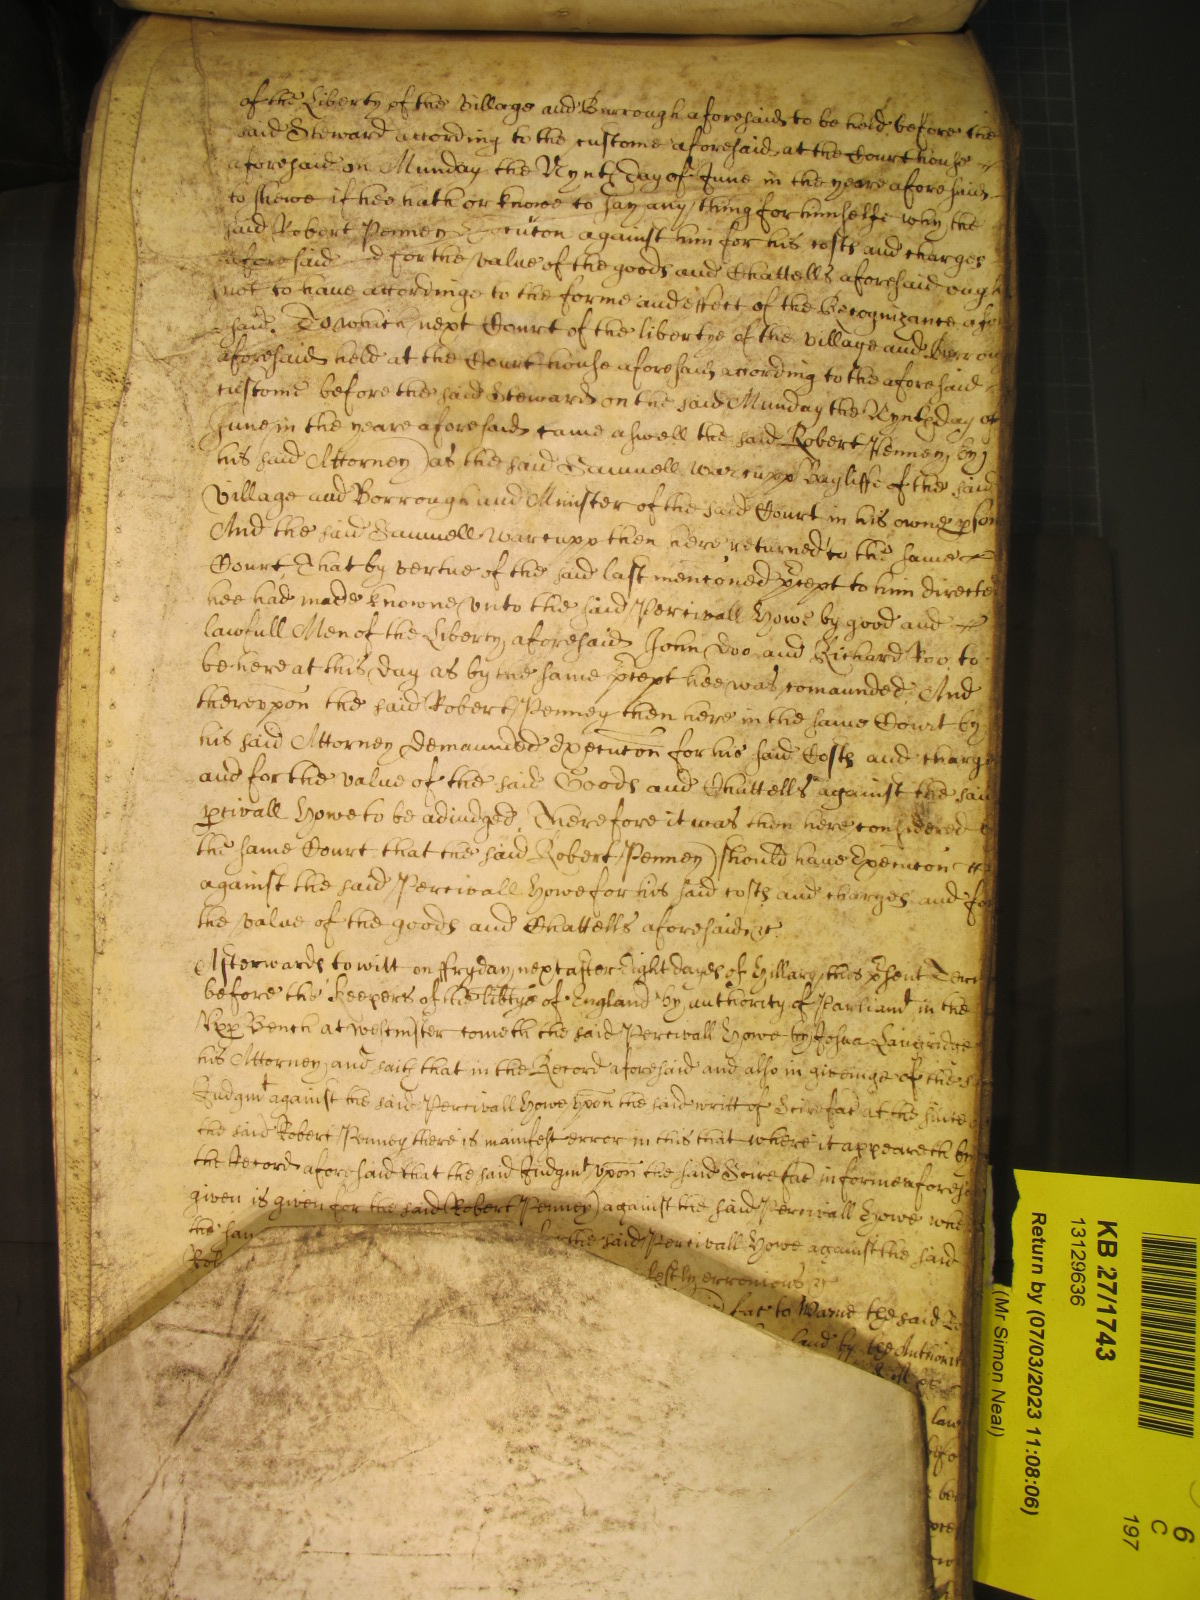 of the Liberty of the Village and Burrough aforesaid to be held before the
said Steward according to the custome aforesaid at the Court house
aforesaid on Munday the Nynth Day of June in the yeare aforesaid
to shewe if hee hath or knowe to say any thing for himselfe why the
said Robert Penney Execucon against him for his costs and charges
aforesaid d for the value of the goods and Chattells aforesaid ough
not to have accordinge to the forme and effect of the Recognizance afo
said. To which next Court of the libertye of the Village and Burrou
aforesaid held at the Court house aforesaid according to the aforesaid
custome before the said Steward on the said Munday the Nynth day of
June in the yeare aforesaid came aswell the said Robert Penney by
his said Attorney as the said Samuell Warcupp Bayliffe of the said
Village and Borrough and Minister of the said Court in his owne pson
And the said Samuell Warcupp then here returned to the same
Court That by vertue of the said last menconed pcept to him directed
hee had made knowne unto the said Percivall Howe by good and
lawfull Men of the Liberty aforesaid John Doo and Richard Roo to
be here at this day as by the same pcept hee was comaunded And
thereupon the said Robert Penney then here in the same Court by
his said Attorney Demaunded Execucon for his said Costs and charge
and for the value of the said Goods and Chattells against the said
pcivall Howe to be adiudged, Therefore it was then here considered
the same Court that the said Robert Penney should have Execucon
against the said Percivall Howe for his said costs and charges and for
the value of the goods and Chattells aforesaid &c.
Afterwards to witt on ffryday next after Eight dayes of Hillary this psent Terme
before the Keepers of the libtye of England by authority of Parliamt in the
Upp Bench at Westminster cometh the said Percivall Howe by Joshua
his Attorney and saith that in the Record aforesaid and also in giveinge of the
Judgmt against the said Percivall Howe upon the said writt of Scire fac at the suite
the said Robert Penney there is manifest error in this that where it appeareth by
the Record aforesaid that the said Judgmt upon the said Scire fac in forme aforesaid
given is given for the said Robert Penney against the said Percivall Howe
the sam the said Percivall Howe against the said
Rob estly erronious &c
fac to Warne the said
land by the Authorit
law
befo
be
KB 27/1743
13129636
Return by (07/03/2023 11:08:06)
(Mr Simon Neal)
6
C
197